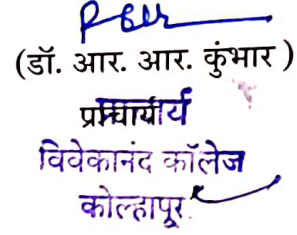 (डॉ. आर. आर. कुंभार )
प्राचार्य
विवेकानंद कॉलेज
कोल्हापूर.